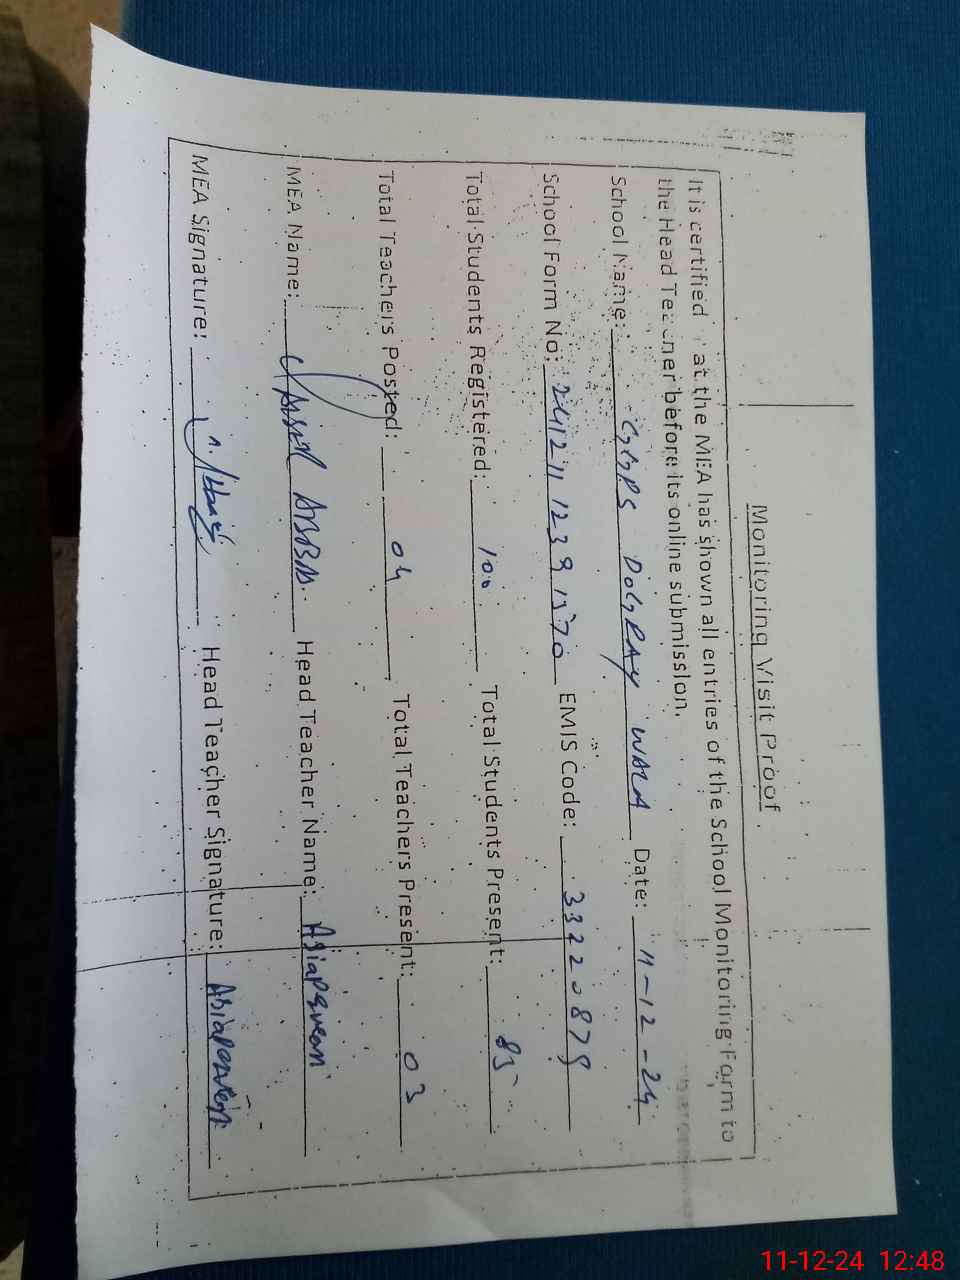 Monitoring Visit Proof
It is certified at the MEA has shown all entries of the School Monitoring Form to
the Head Teacher before its online submission.
School Name: GGPS DOGRAY WALA Date: 11-12-24
School Form No: EMIS Code: 33220879
Total Students Registered: 100 Total Students Present: 85
Total Teachers Posted: 04 Total Teachers Present: 03
MEA Name: ABBAS. Head Teacher Name: Asiaperveen
MEA Signature: Head Teacher Signature:
11-12-24 12:48